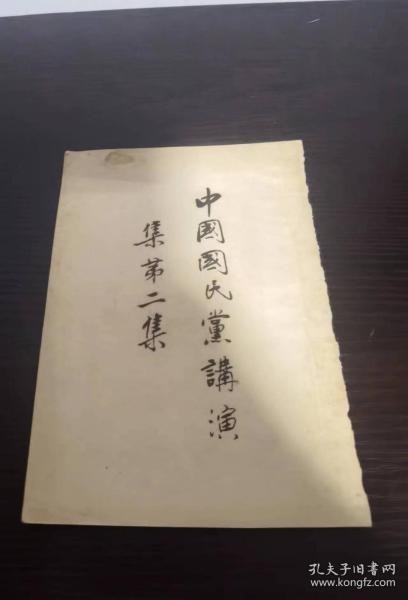 中國國民黨講演
集第二集
孔夫子旧书网
www.kongfz.com